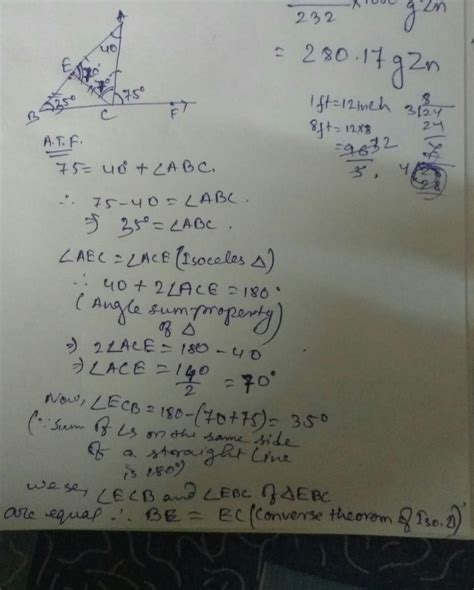 232
= 280.17 g Zn
1 ft = 12 inch
8 ft = 12 x 8
8
3 24
24
A
40
E
70°
75°
B
35°
C
F
A.T.F.
75 = 40 + ∠ABC.
∴ 75 - 40 = ∠ABC.
⇒ 35° = ∠ABC.
∠AEC = ∠ACE (Isoceles Δ)
∴ 40 + 2∠ACE = 180°
(Angle sum property
of Δ
⇒ 2∠ACE = 180 - 40
⇒ ∠ACE = 140/2 = 70°
Now, ∠ECB = 180 - (70 + 75) = 35°
(∵ Sum of ∠s on the same side
of a straight line
is 180°)
we see, ∠ECB and ∠EBC of ΔEBC
are equal ∴ BE = EC (Converse theorom of Iso. Δ)